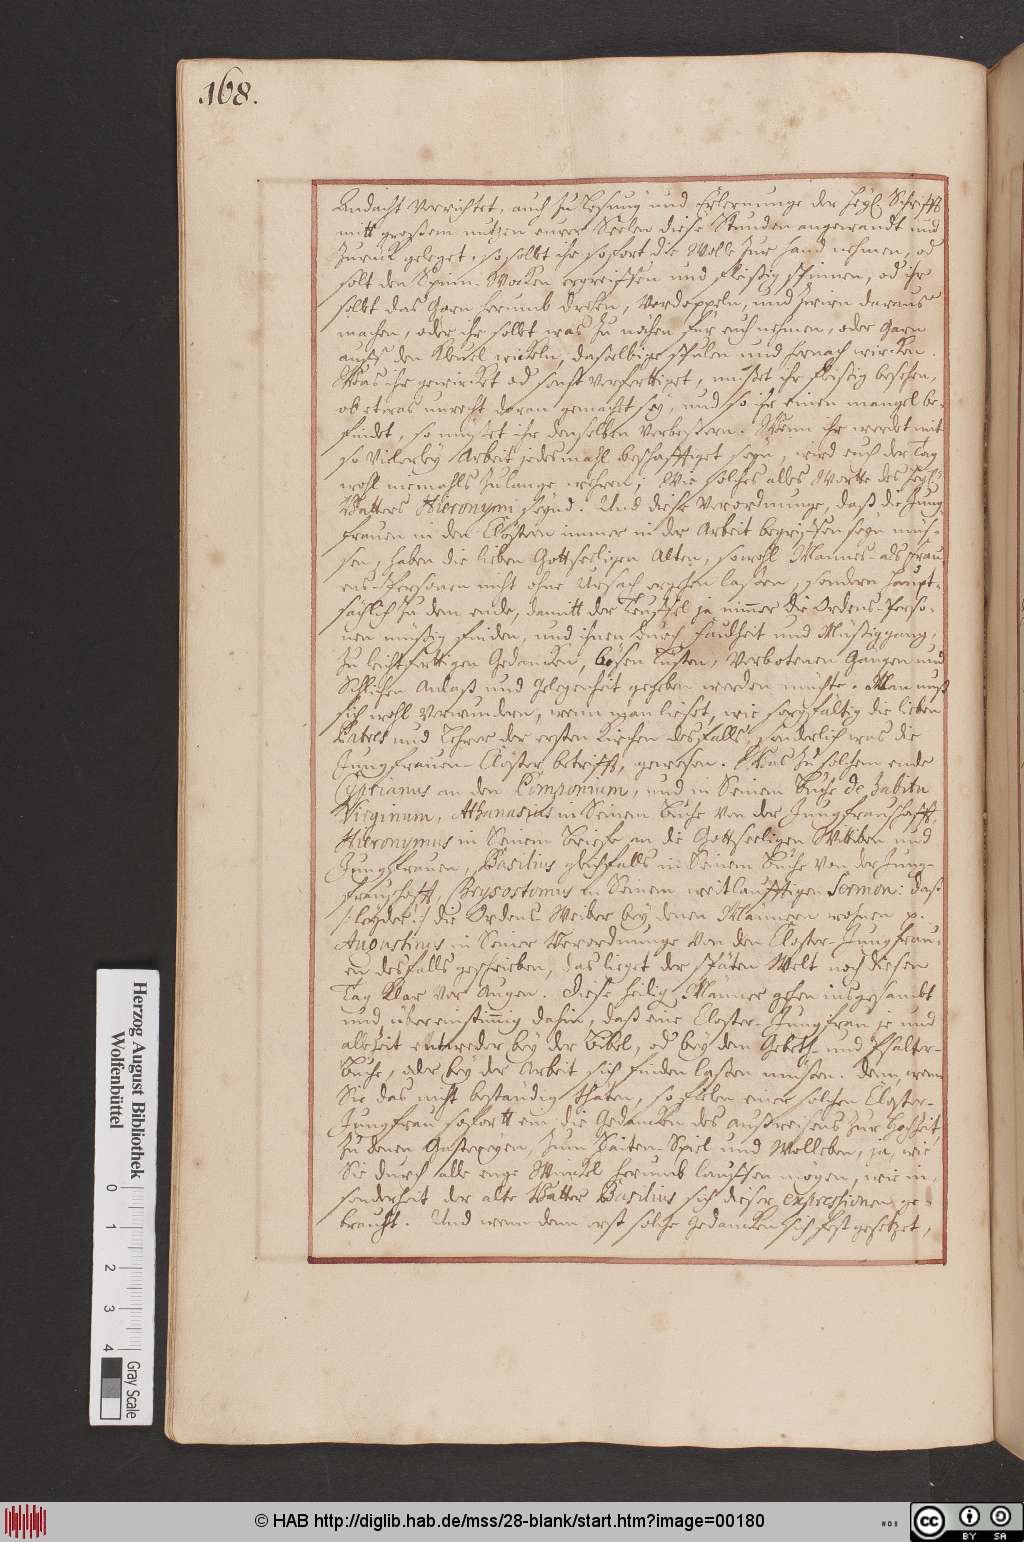 168.
Andacht verrichtet, auch zu Lesung und Erlernunge der heyl. Schrifft
mitt großem nutzen eurer Seelen diese Stunden angewandt und
Zurück geleget, so sollet ihr sofort die Wolle zur hand nehmen, od
solt den Spinn-Wocken ergreiffen und fleißig spinnen, od ihr
sollet das Garn herumb drehen, verdoppeln, und zwirn daraus
machen, oder ihr sollet was zu nähen für euch nehmen, oder Garn
auffs den Kleuel wickeln, daselbige spulen und hernach wircken.
Was ihr gewircket od sonst verfertiget, müßet ihr fleißig besehen,
ob etwas unrecht daran gemacht sey, und so ihr einen mangel be-
findet, so müßet ihr denselben verbeßern. Wenn ihr werdet mit
so vielerley Arbeit jedesmahl beschäfftiget seyn, wird euch der Tag
wohl niemahls zu lange wehren; Wie solches alles Wortte des heyl.
Vatters Hieronymi seynd. Und diese Verordnunge, daß die Jung
frauen in den Clöstern immer in der Arbeit begriffen seyn müs-
sen, haben die lieben Gottseeligen Alten, sowohl Mannes- als Frau
ens-Personen nicht ohne Ursach ergehen lassen, sondern haupt-
sächlich zu dem ende, damitt der Teuffel ja nimmer die Ordens-Perso-
nen müßig finden, und ihnen durch faulheit und Müßiggang,
zu leichtfertigen Gedancken, bösen Lüsten, verbotenen Gängen und
Schlichen Anlaß und gelegenheit gegeben werden müchte. Man muß
sich wohl verwundern, wenn man lieset, wie sorgfältig die lieben
Patres und Lehrer der ersten Kirchen desfalls, sonderlich was die
Jungfrauen-Clöster betrifft, gewesen. Was zu solchem ende
Cyprianus an den Pomponium, und in Seinem Buche de habitu
Virginum, Athanasius in Seinem Buche von der Jungfrauschafft,
Hieronymus in Seinem Briefe an die Gottseeligen Wittiben und
Jungfrauen, Basilius gleichfalls in Seinem Buche von der Jung-
frauschafft, Chrysostomus in Seinem weitläufftigen Sermon: daß
/: leyder :/ die Ordens Weiber bey denen Männern wohnen p.
Augustinus in Seiner Verordnunge von den Closter-Jungfrau-
en desfalls geschrieben, das lieget der späten Welt noch diesen
Tag klar vor Augen. Diese heilig. Männer gehen insgesambt
und übereinstimmig dahin, daß eine Closter-Jungfrau je und
allezeit entweder bey der Bibel, od bey dem Gebeth- und Psalter-
Buche, oder bey der Arbeit sich finden lassen müßen. Denn, wenn
Sie das nicht beständig thäten, so fielen einer solchen Closter-
Jungfrau sofort ein die Gedancken des außreisens zur Hochzeit,
zu denen Gastereyen, zum Saiten-Spiel und Wolleben, ja, wie
Sie durch alle enge Winckel herumb lauffen mögen, wie in-
sonderheit der alte Vatter Basilius sich dieser expressionen ge-
braucht. Und wenn denn erst solche Gedancken sich fest gesetzet,
Herzog August Bibliothek
Wolfenbüttel
0 1 2 3 4
Gray Scale
© HAB http://diglib.hab.de/mss/28-blank/start.htm?image=00180
WDB
cc BY SA